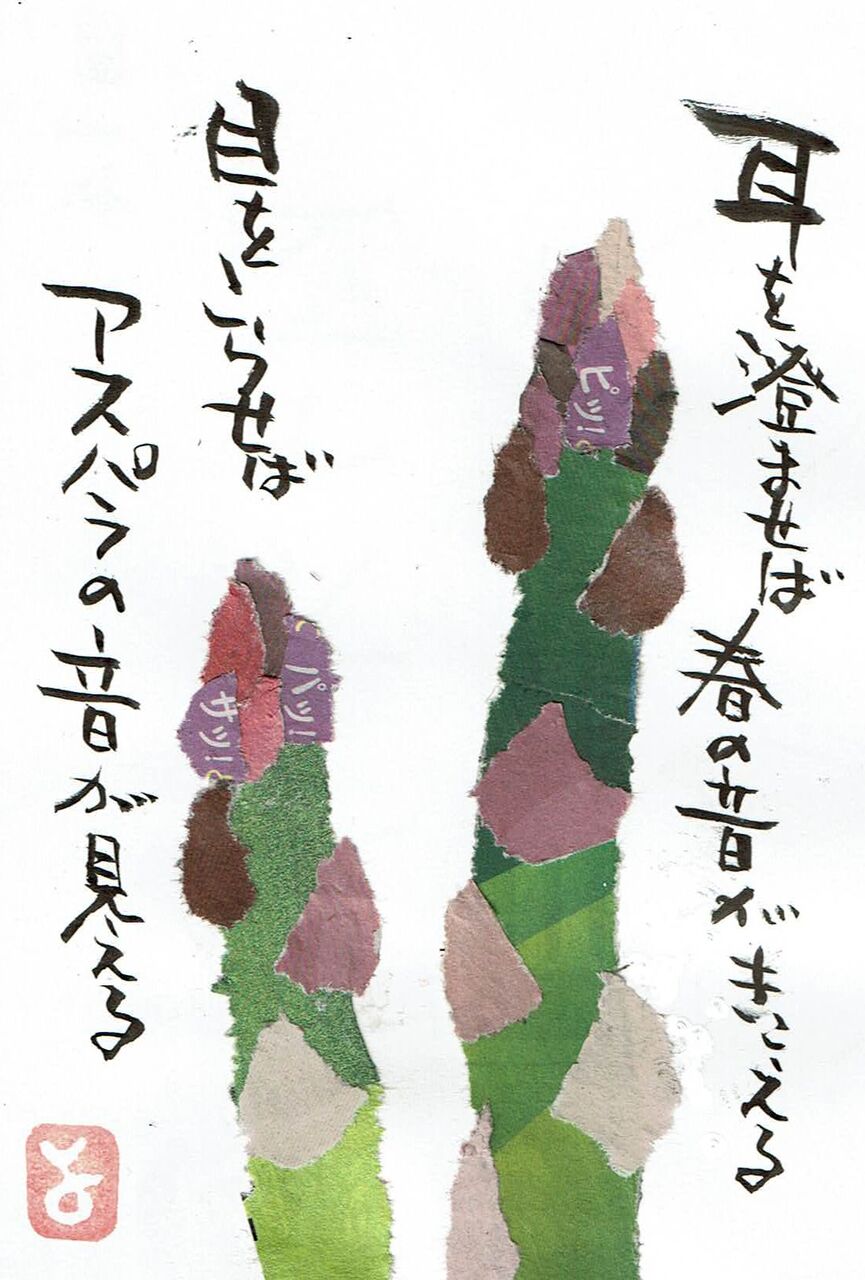 耳を澄ませば春の音がきこえる
目をこらせば
アスパラの音が見える
ピッ!
パッ!
サッ!
と